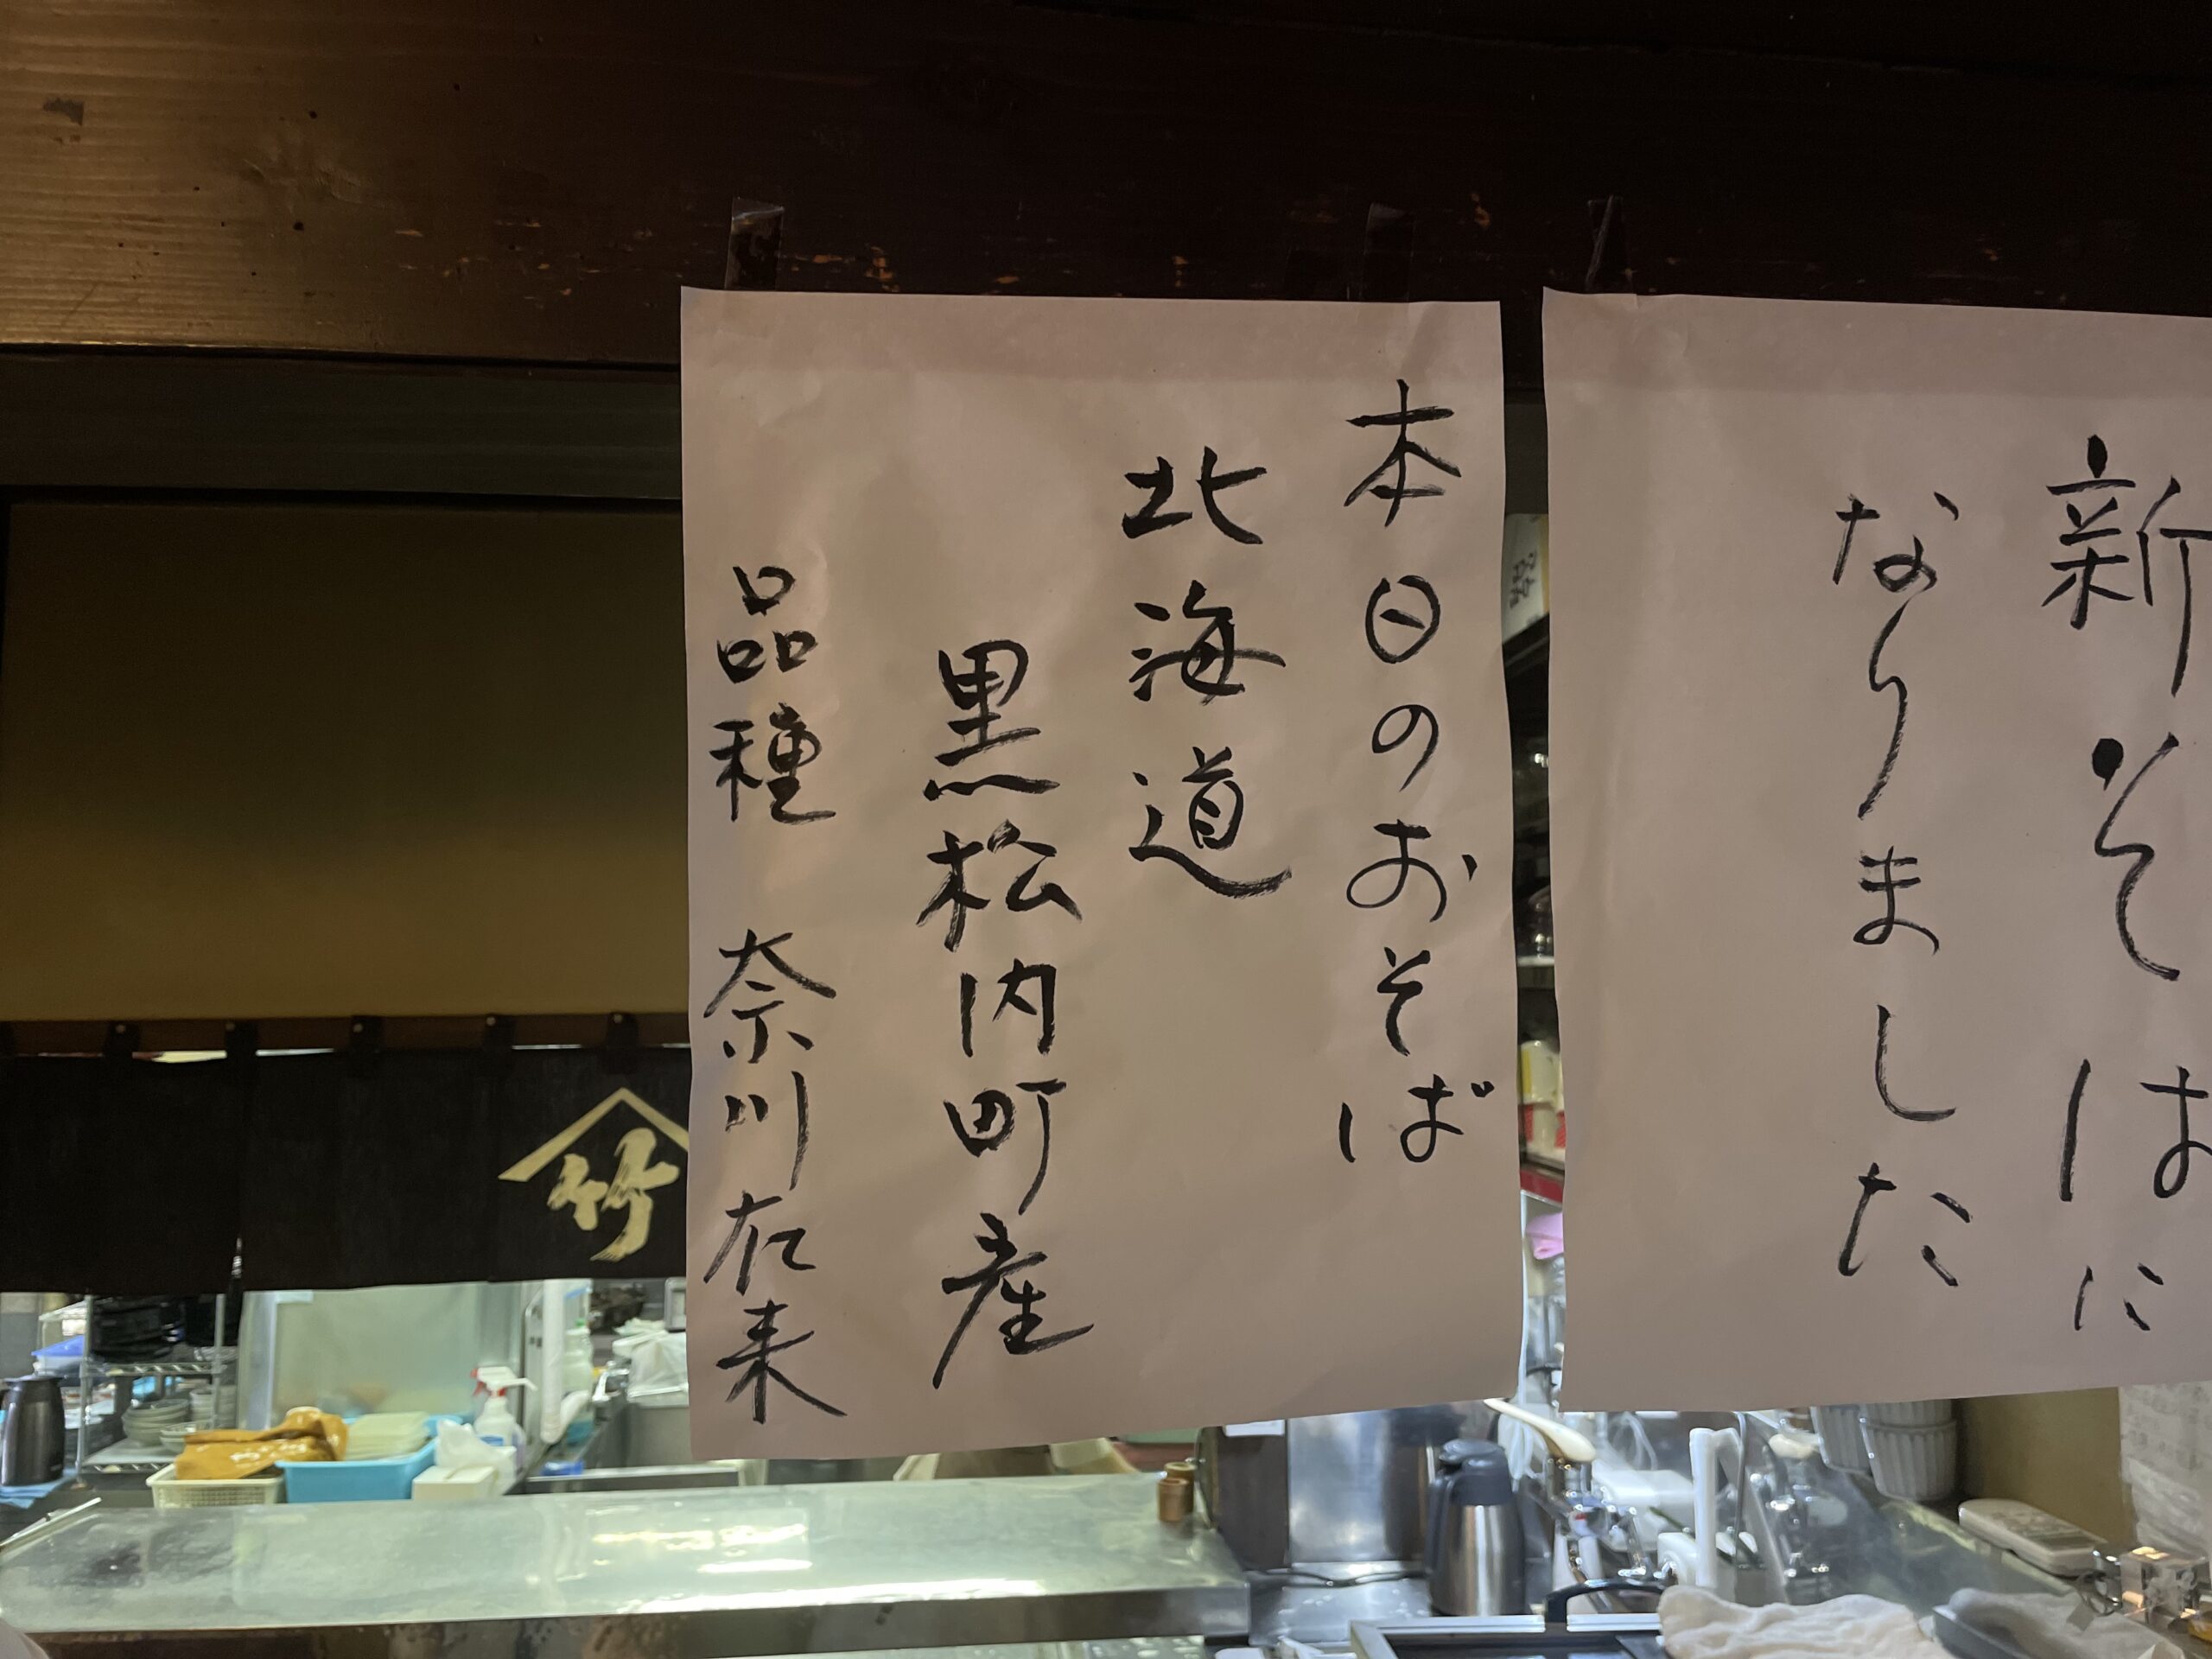 新そばに
なりました
本日のおそば
北海道
黒松内町産
品種 奈川在来
竹